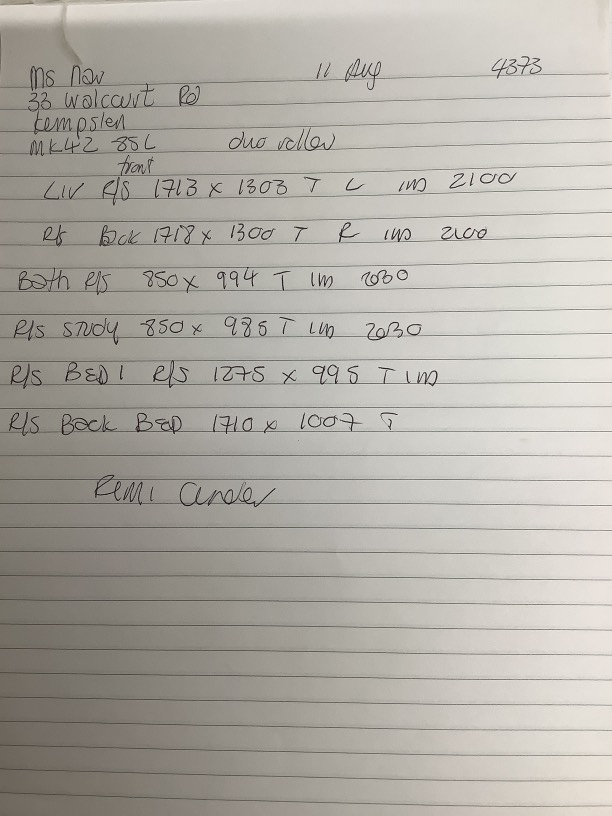 Ms Naw 11 Aug 4373
33 walcourt Rd
kempsten
MK42 8SL duo roller
front
LIV R/S 1713 x 1303 T L IM 2100
R/S Back 1718 x 1300 T R IM 2100
Bath R/S 850 x 994 T IM 2030
R/S STUDY 850 x 985 T IM 2030
R/S BED 1 R/S 1275 x 995 T IM
R/S Back BED 1710 x 1007 T
Remi